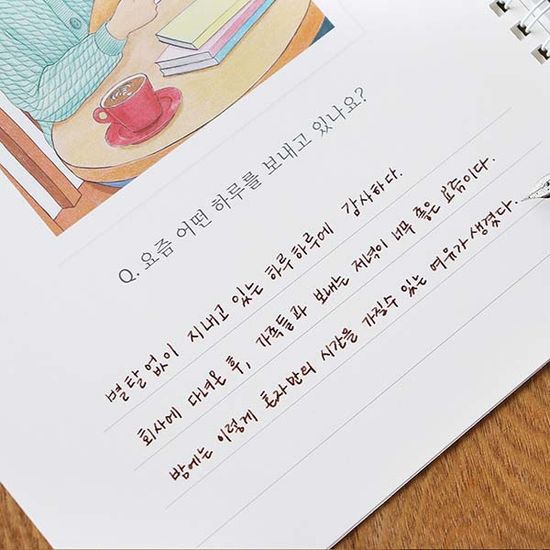 Q. 요즘 어떤 하루를 보내고 있나요?
별탈없이 지내고 있는 하루하루에 감사하다.
회사에 다녀온 후, 가족들과 보내는 저녁이 너무 좋은 요즘이다.
밤에는 이렇게 혼자만의 시간을 가질수 있는 여유가 생겼다.